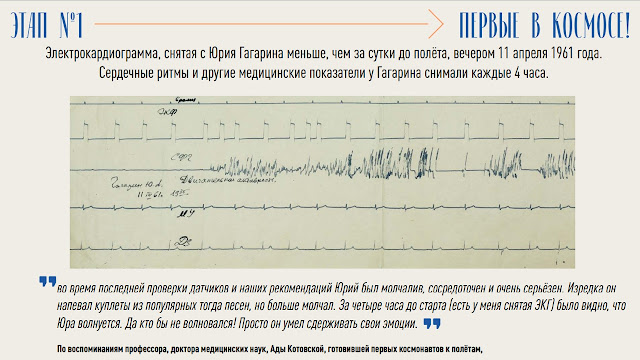 ЭТАП №1
ПЕРВЫЕ В КОСМОСЕ!
Электрокардиограмма, снятая с Юрия Гагарина меньше, чем за сутки до полёта, вечером 11 апреля 1961 года.
Сердечные ритмы и другие медицинские показатели у Гагарина снимали каждые 4 часа.
Двигательная активность.
Гагарин Ю.А.
"во время последней проверки датчиков и наших рекомендаций Юрий был молчалив, сосредоточен и очень серьёзен. Изредка он
напевал куплеты из популярных тогда песен, но больше молчал. За четыре часа до старта (есть у меня снятая ЭКГ) было видно, что
Юра волнуется. Да кто бы не волновался! Просто он умел сдерживать свои эмоции. "
По воспоминаниям профессора, доктора медицинских наук, Ады Котовской, готовившей первых космонавтов к полётам,